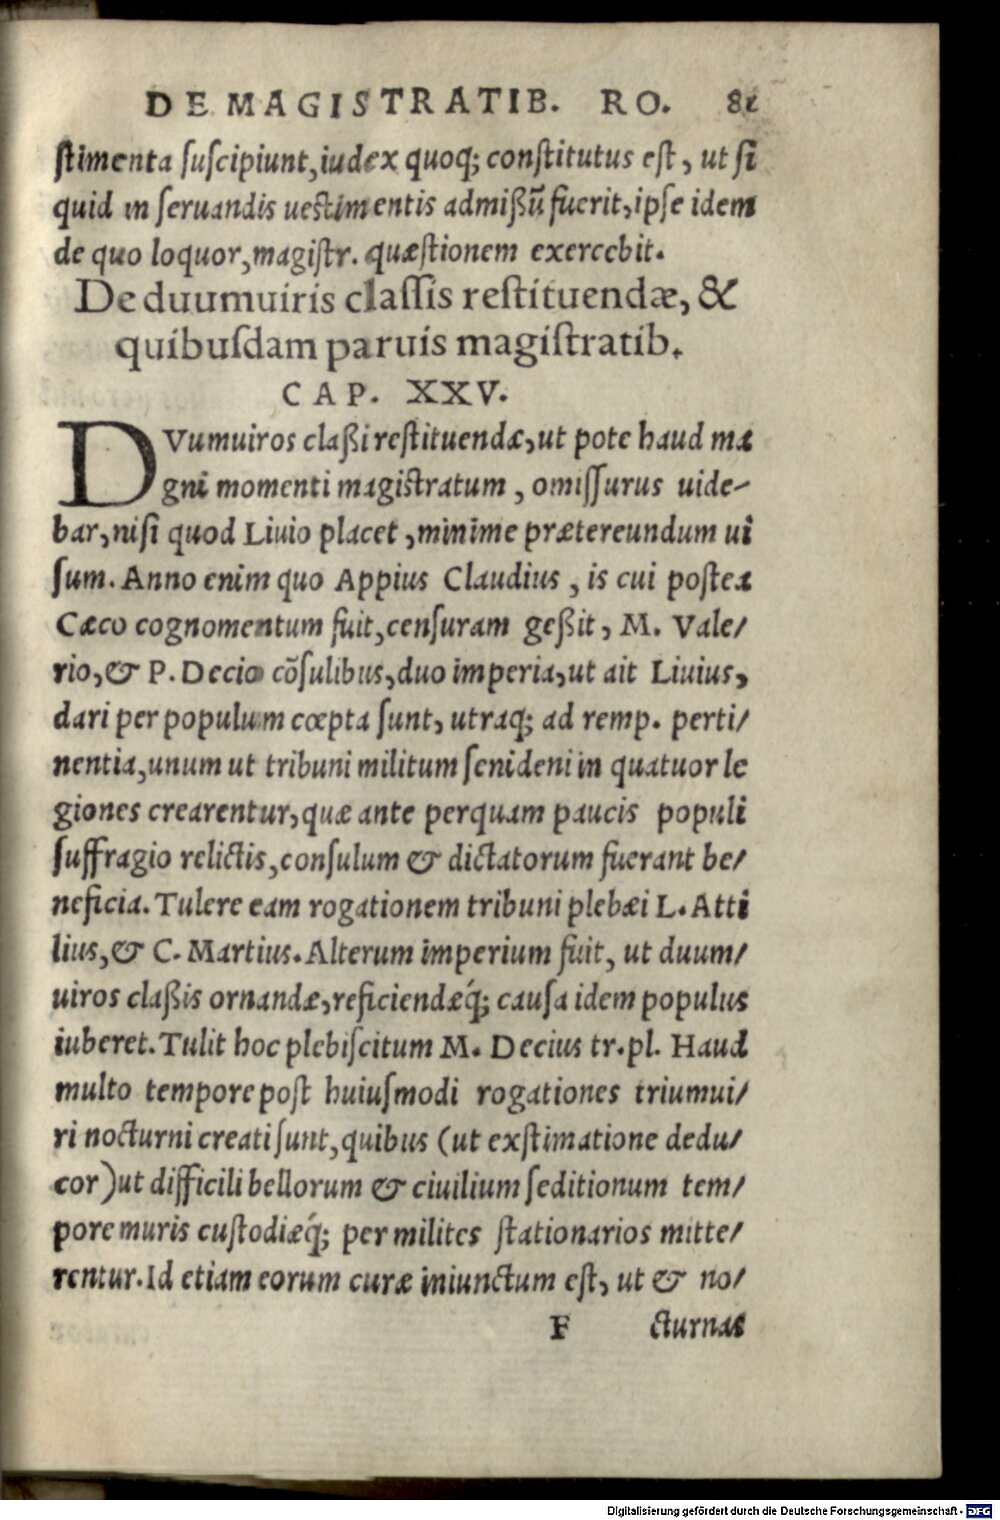 DE MAGISTRATIB. RO. 81
ſtimenta ſuſcipiunt, iudex quoq; conſtitutus eſt, ut ſi
quid in ſeruandis ueſtimentis admißũ fuerit, ipſe idem
de quo loquor, magiſtr. quæſtionem exercebit.
De duumuiris claſſis reſtituendæ, &
quibuſdam paruis magiſtratib.
CAP. XXV.
DVumuiros claßi reſtituendæ, ut pote haud ma
gni momenti magiſtratum, omiſſurus uide-
bar, niſi quod Liuio placet, minime prætereundum ui
ſum. Anno enim quo Appius Claudius, is cui poſtea
Cæco cognomentum fuit, cenſuram geßit, M. Vale/
rio, & P. Decio cõſulibus, duo imperia, ut ait Liuius,
dari per populum cœpta ſunt, utraq; ad remp. perti/
nentia, unum ut tribuni militum ſenideni in quatuor le
giones crearentur, quæ ante perquam paucis populi
ſuffragio relictis, conſulum & dictatorum fuerant be/
neficia. Tulere eam rogationem tribuni plebæi L. Atti
lius, & C. Martius. Alterum imperium fuit, ut duum/
uiros claßis ornandæ, reficiendæq́; cauſa idem populus
iuberet. Tulit hoc plebiſcitum M. Decius tr. pl. Haud
multo tempore poſt huiuſmodi rogationes triumui/
ri nocturni creati ſunt, quibus (ut exſtimatione dedu/
cor) ut difficili bellorum & ciuilium ſeditionum tem/
pore muris cuſtodiæq́; per milites ſtationarios mitte/
rentur. Id etiam eorum curæ iniunctum eſt, ut & no/
F cturnas
Digitalisierung gefördert durch die Deutsche Forschungsgemeinschaft - DFG